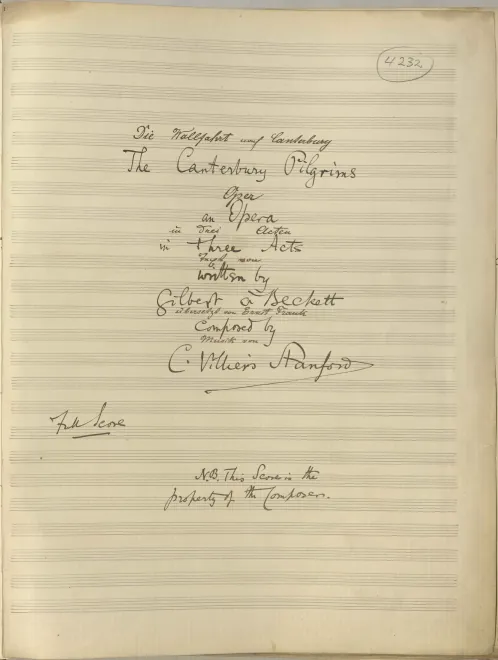 4232
Die Wallfahrt nach Canterbury
The Canterbury Pilgrims
Oper
an Opera
in Drei Acten
in Three Acts
von
written by
Gilbert à Beckett
übersetzt von Ernst Frank
Composed by
Musik von
C. Villiers Stanford
Full Score
N.B. This Score is the
property of the Composer.